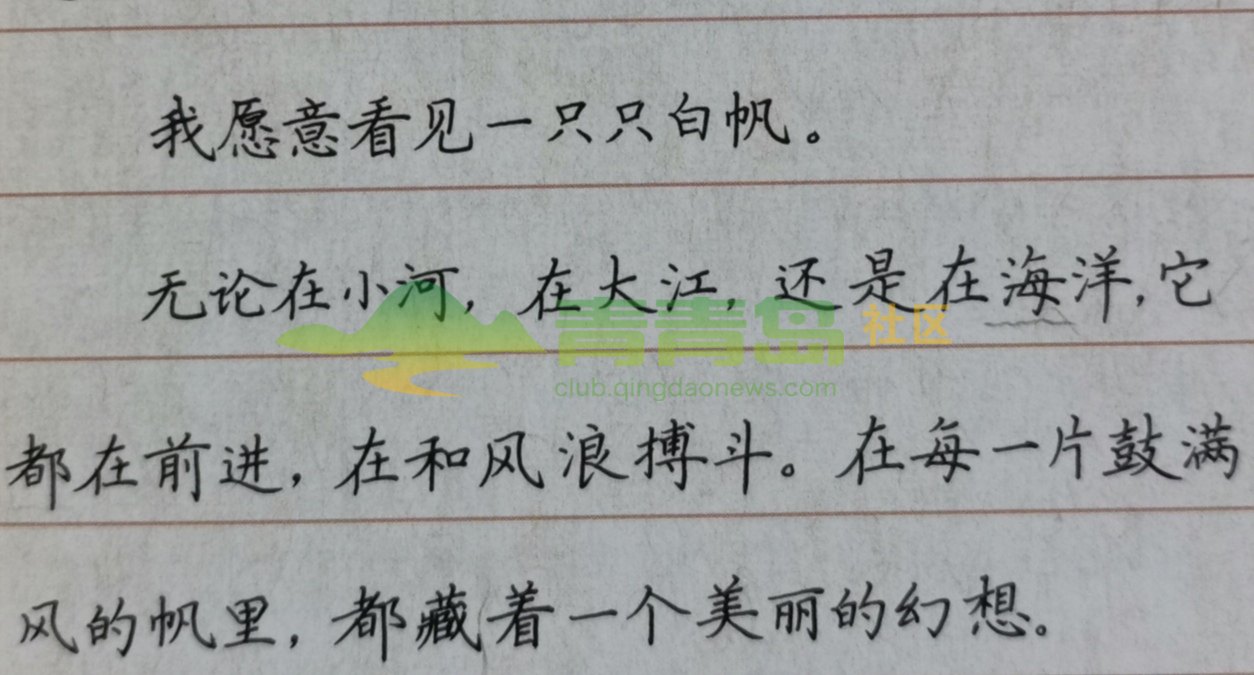 我愿意看见一只只白帆。
无论在小河，在大江，还是在海洋，它
青青岛社区
club.qingdaonews.com
都在前进，在和风浪搏斗。在每一片鼓满
风的帆里，都藏着一个美丽的幻想。